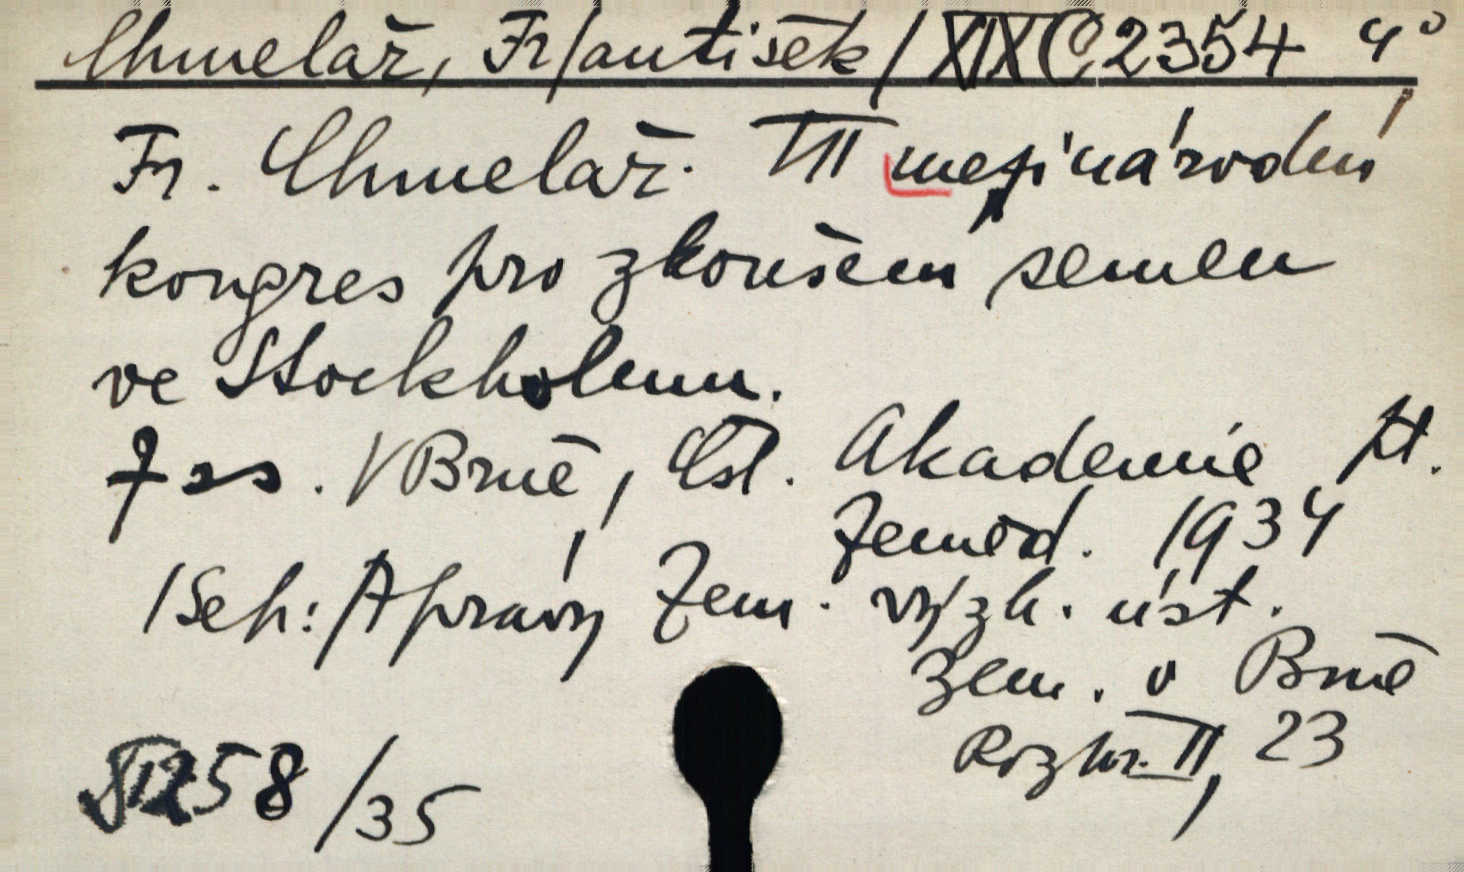 Chmelař, Fr/antišek/ XIX C 2354 4°
Fr. Chmelař: VII mezinárodní
kongres pro zkoušení semen
ve Stockholmu.
7 ss. V Brně, Čsl. Akademie
Zeměd. 1934
/Sep: Zprávy Zem. výzk. úst.
Zem. v Brně
Rozbr. II, 23
58/35